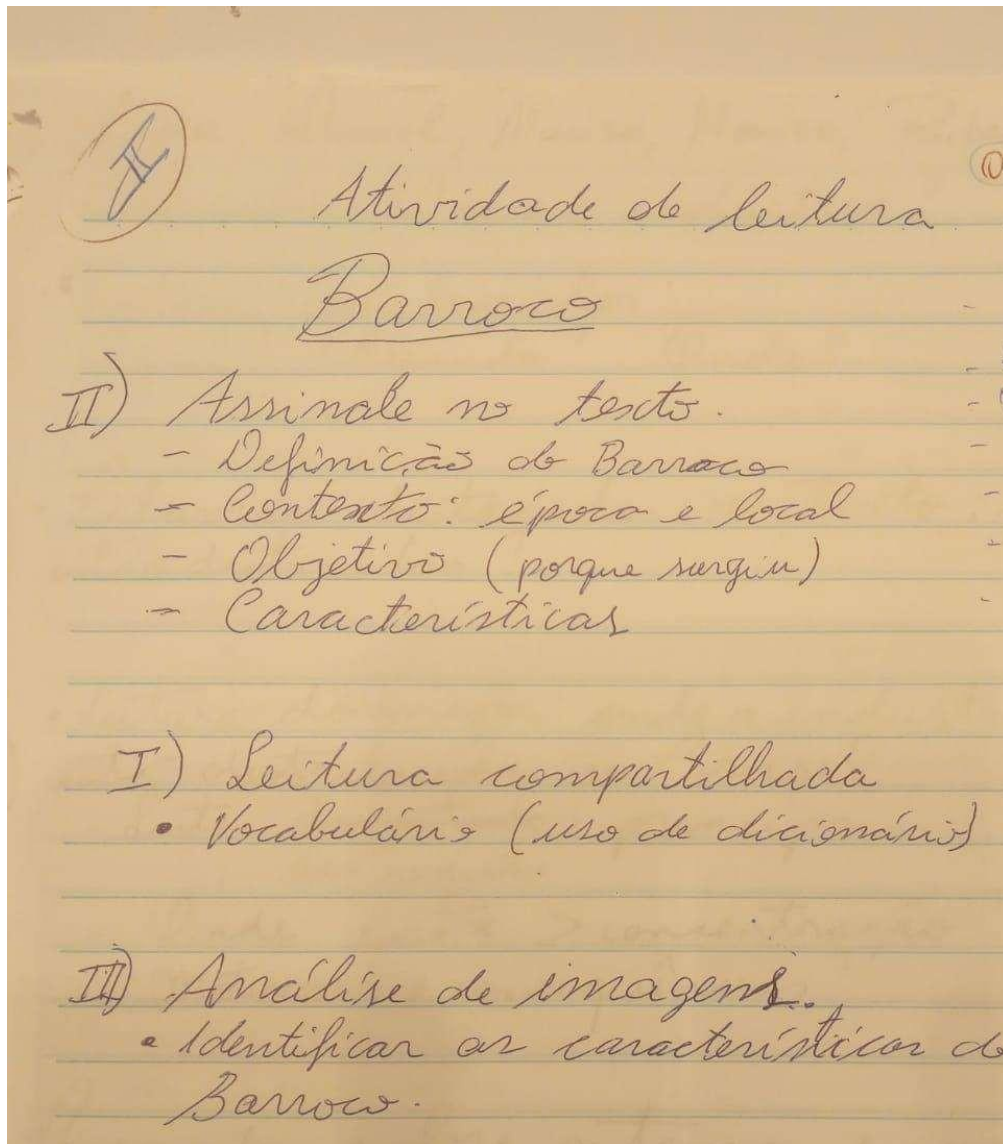 II
Atividade de leitura
Barroco
II) Assinale no texto.
- Definição do Barroco
- Contexto: época e local
- Objetivo (porque surgiu)
- Características
I) Leitura compartilhada
• Vocabulário (uso de dicionário)
III) Análise de imagens.
• Identificar as características do
Barroco.